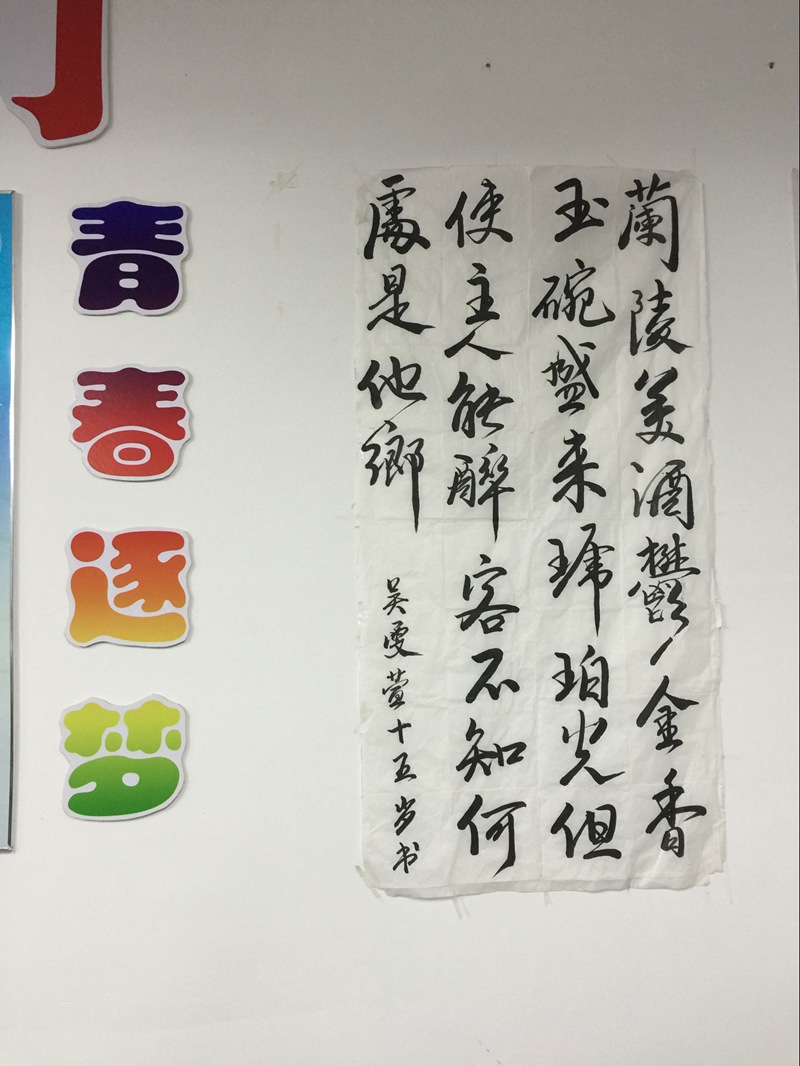 青春逐梦
蘭陵美酒鬱金香
玉碗盛来琥珀光但
使主人能醉客不知何
處是他鄉
吴雯萱十五岁书